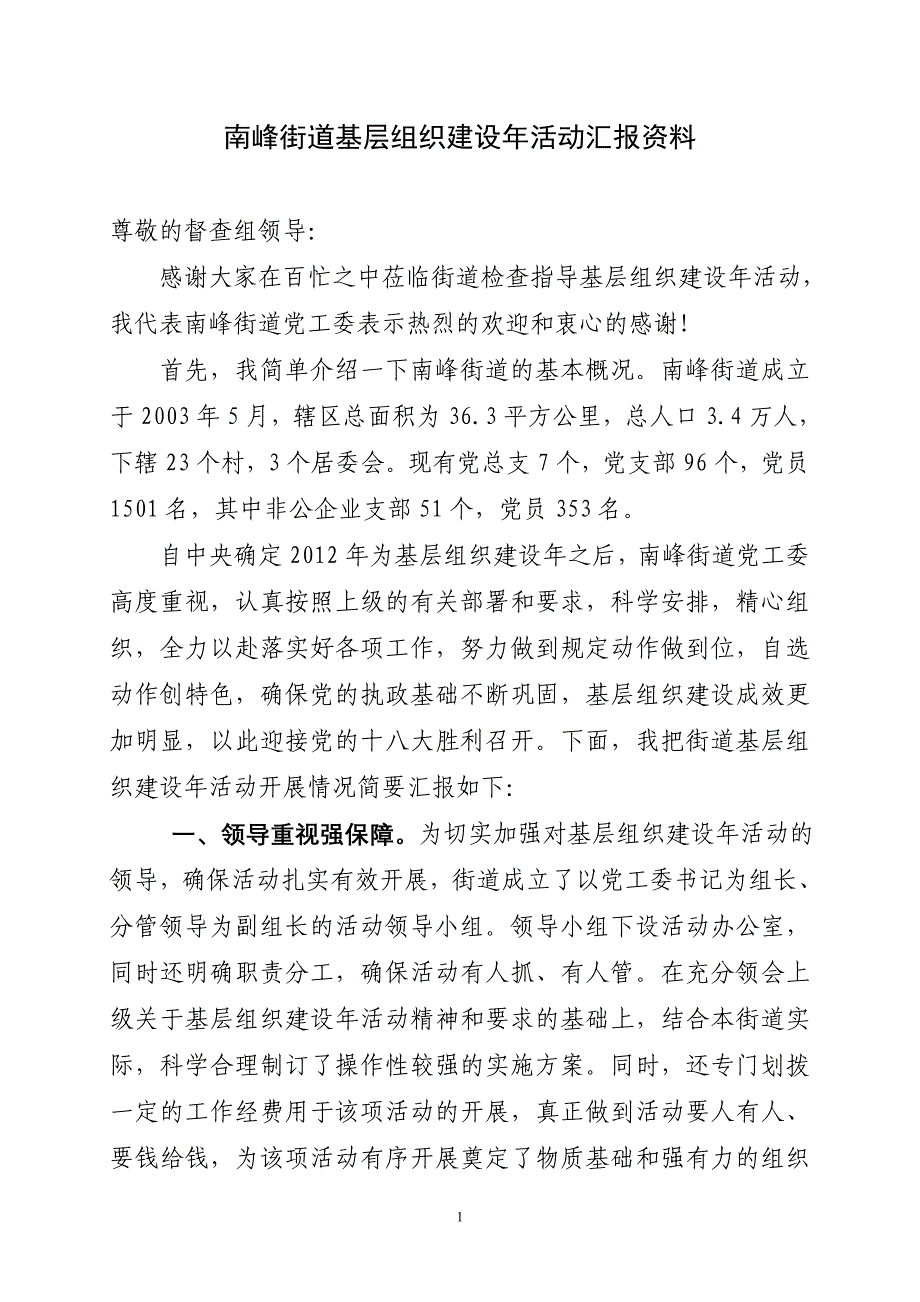 南峰街道基层组织建设年活动汇报资料
尊敬的督查组领导:
感谢大家在百忙之中莅临街道检查指导基层组织建设年活动,
我代表南峰街道党工委表示热烈的欢迎和衷心的感谢!
首先,我简单介绍一下南峰街道的基本概况。南峰街道成立
于 2003 年 5 月,辖区总面积为 36.3 平方公里,总人口 3.4 万人,
下辖 23 个村,3 个居委会。现有党总支 7 个,党支部 96 个,党员
1501 名,其中非公企业支部 51 个,党员 353 名。
自中央确定 2012 年为基层组织建设年之后,南峰街道党工委
高度重视,认真按照上级的有关部署和要求,科学安排,精心组
织,全力以赴落实好各项工作,努力做到规定动作做到位,自选
动作创特色,确保党的执政基础不断巩固,基层组织建设成效更
加明显,以此迎接党的十八大胜利召开。下面,我把街道基层组
织建设年活动开展情况简要汇报如下:
一、领导重视强保障。为切实加强对基层组织建设年活动的
领导,确保活动扎实有效开展,街道成立了以党工委书记为组长、
分管领导为副组长的活动领导小组。领导小组下设活动办公室,
同时还明确职责分工,确保活动有人抓、有人管。在充分领会上
级关于基层组织建设年活动精神和要求的基础上,结合本街道实
际,科学合理制订了操作性较强的实施方案。同时,还专门划拨
一定的工作经费用于该项活动的开展,真正做到活动要人有人、
要钱给钱,为该项活动有序开展奠定了物质基础和强有力的组织
1